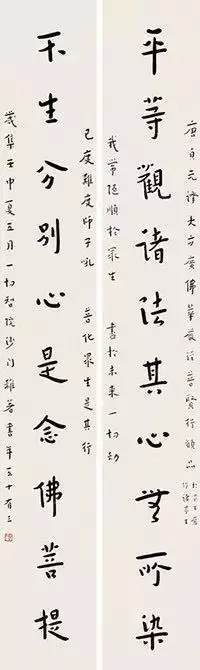 唐貞元譯大方廣佛華嚴經普賢行願品
平等觀諸法其心無所染
我常隨順於眾生 盡於未來一切劫
已度難度師子吼 善化眾生是其行
不生分別心是念佛菩提
歲集壬申夏五月一切智院沙門書年五十有三